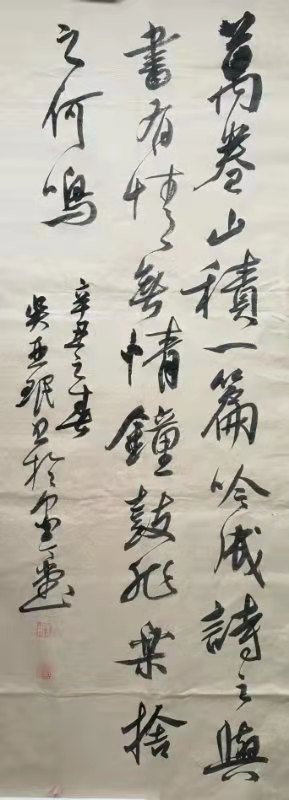 萬卷山積一篇吟成詩之與
書有情無情鐘鼓非樂捨
之何鳴
辛丑之春
吳亞琨書於